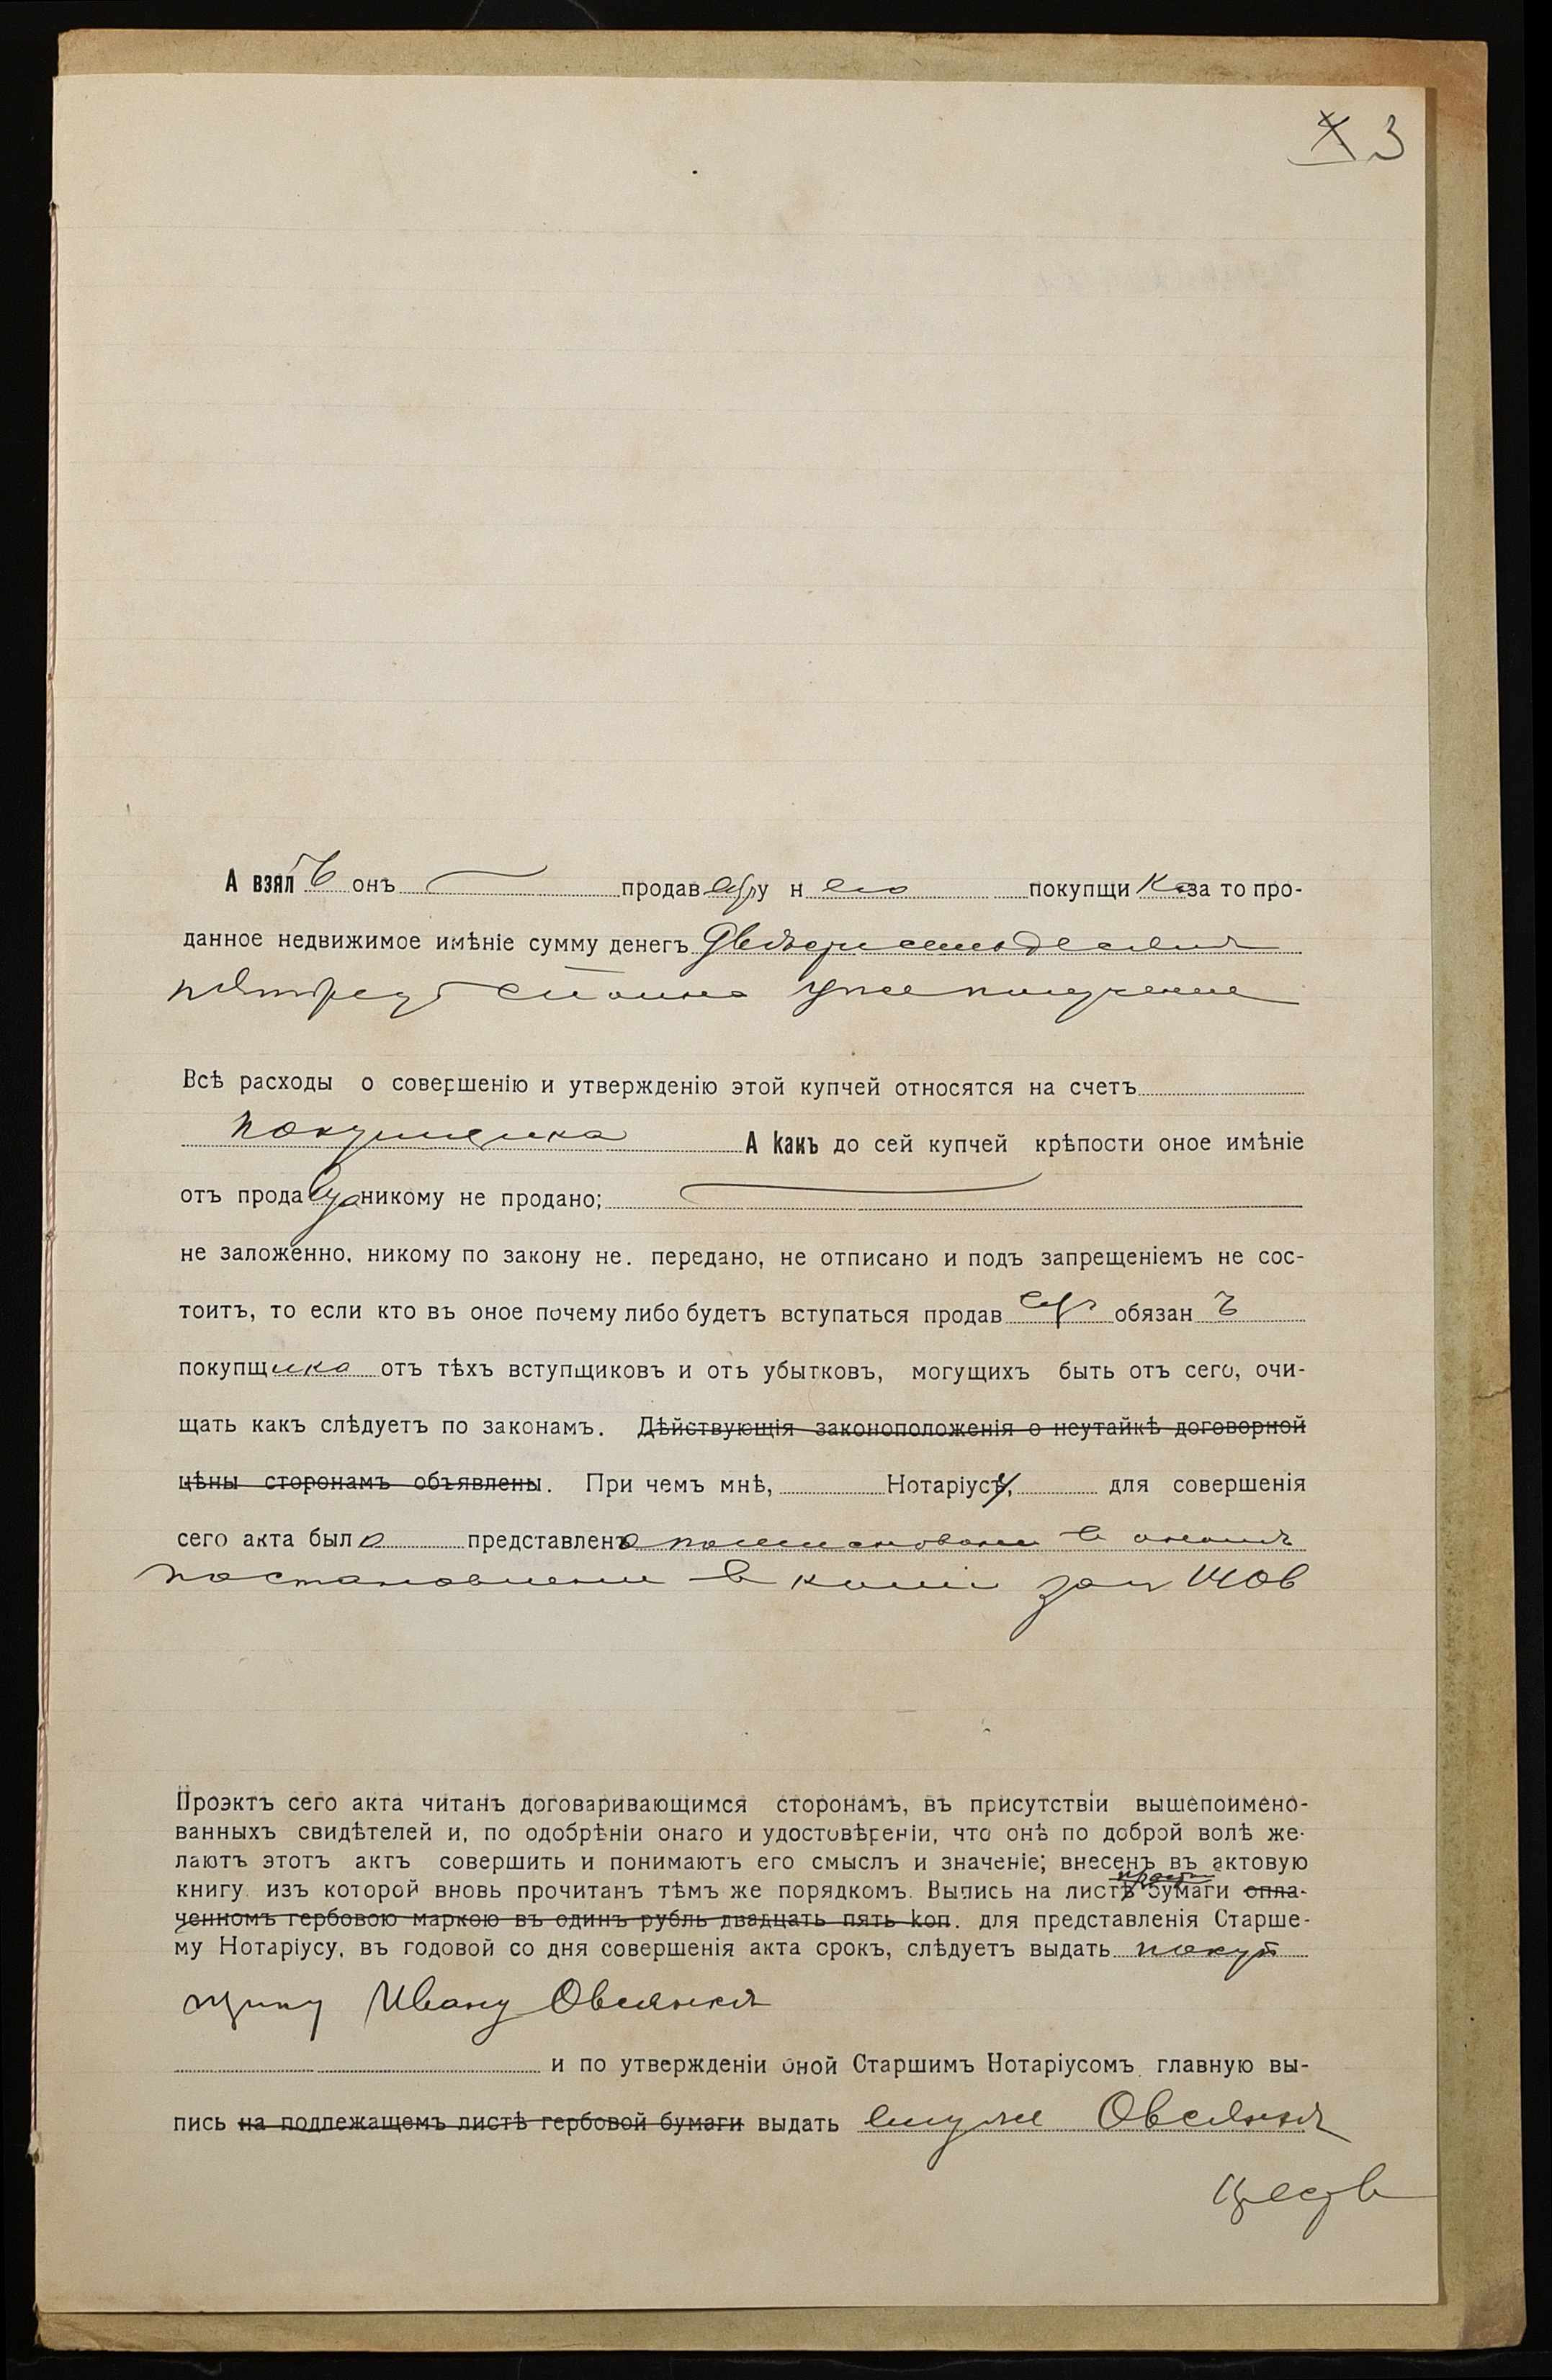 3
А взялъ онъ продавецъ у него покупщика за то про-
данное недвижимое имѣніе сумму денегъ Двѣсти семьдесятъ
пять руб сполна уже полученные
Всѣ расходы о совершенію и утвержденію этой купчей относятся на счетъ
покупщика А какъ до сей купчей крѣпости оное имѣніе
отъ продавца никому не продано;
не заложенно, никому по закону не. передано, не отписано и подъ запрещеніемъ не сос-
тоитъ, то если кто въ оное почему либо будетъ вступаться продавецъ обязанъ
покупщика отъ тѣхъ вступщиковъ и отъ убытковъ, могущихъ быть отъ сего, очи-
щать какъ слѣдуетъ по законамъ. Дѣйствующія законоположенія о неутайкѣ договорной
цѣны сторонамъ объявлены. При чемъ мнѣ, Нотаріусу, для совершенія
сего акта было представлено поименованное в
постановление в копии за
Проэктъ сего акта читанъ договаривающимся сторонамъ, въ присутствіи вышепоимено-
ванныхъ свидѣтелей и, по одобрѣніи онаго и удостовѣреніи, что онѣ по доброй волѣ же-
лаютъ этотъ актъ совершить и понимаютъ его смыслъ и значеніе; внесенъ въ актовую
книгу изъ которой вновь прочитанъ тѣмъ же порядкомъ. Выпись на листѣ простой бумаги опла-
ченномъ гербовою маркою въ одинъ рубль двадцать пять коп. для представленія Старше-
му Нотаріусу, въ годовой со дня совершенія акта срокъ, слѣдуетъ выдать покуп
щику Ивану Овсянкѣ
и по утвержденіи оной Старшимъ Нотаріусомъ главную вы-
пись на подлежащемъ листѣ гербовой бумаги выдать ему же Овсянкѣ